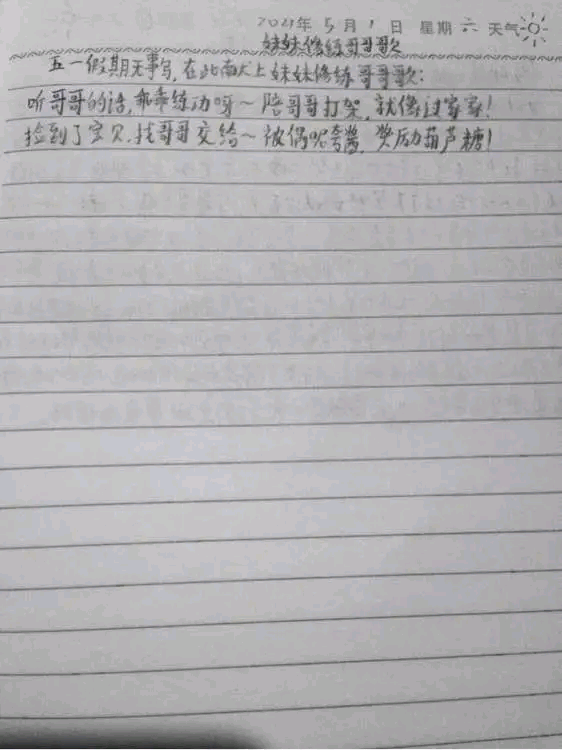 2021年 5月 1日 星期六 天气
妹妹修练哥哥歌
五一假期无事写,在此献上妹妹修练哥哥歌:
听哥哥的话,乖乖练功呀~陪哥哥打架,就像过家家!
捡到了宝贝,找哥哥交给~被偶呢夸酱,奖励葫芦糖!